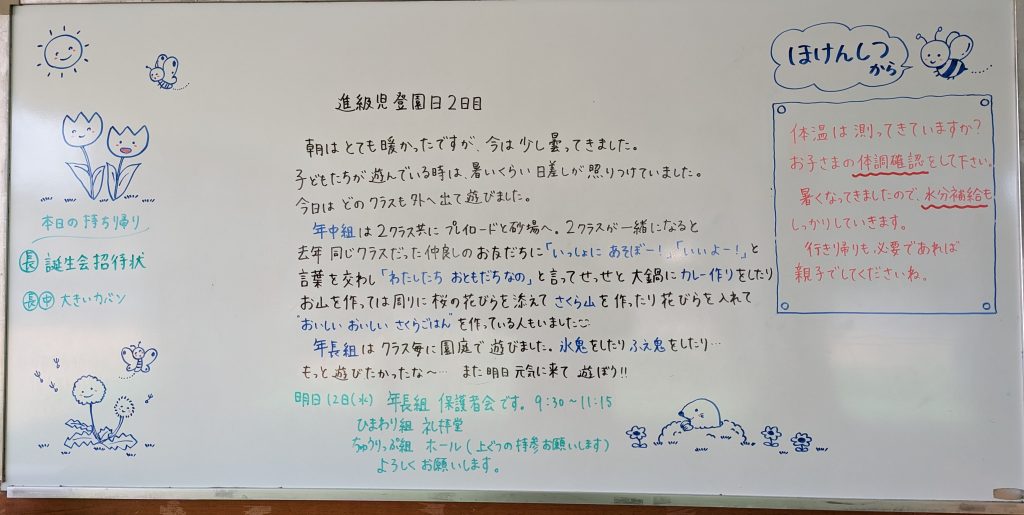 進級児登園日2日目
朝はとても暖かったですが、今は少し曇ってきました。
子どもたちが遊んでいる時は、暑いくらい日差しが照りつけていました。
今日はどのクラスも外へ出て遊びました。
年中組は2クラス共にプレイロードと砂場へ。2クラスが一緒になると
去年同じクラスだった仲良しのお友だちに「いっしょにあそぼー!」「いいよー!」と
言葉を交わし「わたしたちおともだちなの」と言ってせっせと大鍋にカレー作りをしたり
お山を作っては周りに桜の花びらを添えてさくら山を作ったり花びらを入れて
"おいしいおいしいさくらごはん"を作っている人もいました
年長組はクラス毎に園庭で遊びました。氷鬼をしたりふえ鬼をしたり…
もっと遊びたかったな～… また明日元気に来て遊ぼう!!
明日12日(水) 年長組 保護者会です。9:30～11:15
ひまわり組 礼拝堂
ちゅうりっぷ組 ホール(上ぐつの持参お願いします)
よろしくお願いします。
本日の持ち帰り
長 誕生会招待状
長 中 大きいカバン
ほけんしつ
から
体温は測ってきていますか?
お子さまの体調確認をして下さい。
暑くなってきましたので、水分補給も
しっかりしていきます。
行き帰りも必要であれば
親子でしてくださいね。